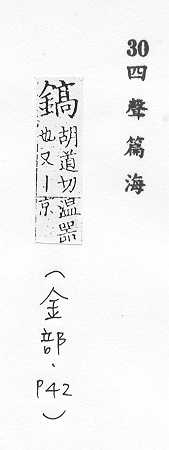 30四聲篇海
鎬胡道切温器
也又丨京
(金部、P42)